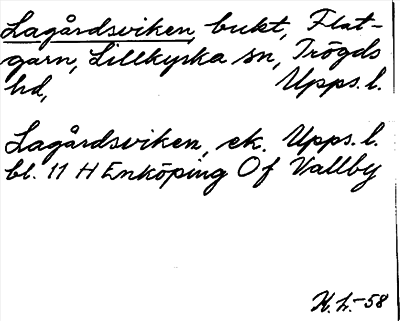 Lagårdsviken, bukt, Flat-
garn, Lillkyrka sn, Trögds
hd, Upps. l.
Lagårdsviken, ek. Upps. l.
bl. 11 H Enköping Of Vallby
H. L. -58